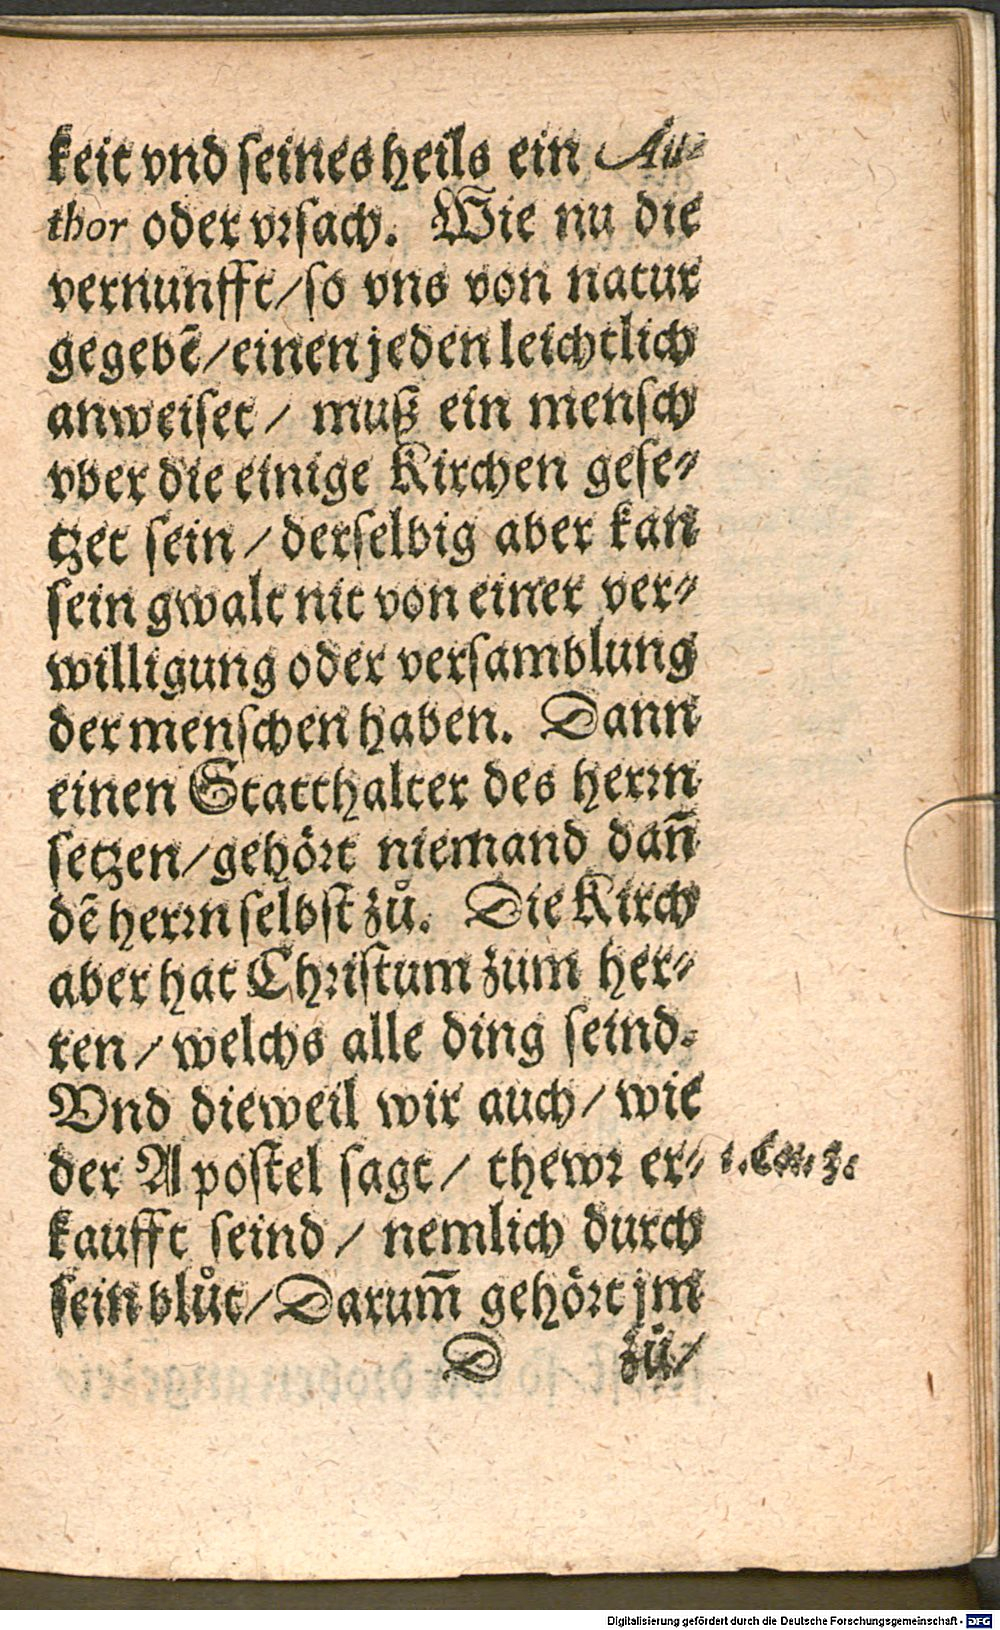 keit vnd seines heils ein Au-
thor oder vrsach. Wie nu die
vernunfft/so vns von natur
gegebẽ/einen jeden leichtlich
anweiset/ muß ein mensch
vber die einige Kirchen gese-
tzet sein/ derselbig aber kan
sein gwalt nit von einer ver-
willigung oder versamblung
der menschen haben. Dann
einen Statthalter des herrn
setzen/gehört niemand dañ
dẽ herrn selbst zů. Die Kirch
aber hat Christum zum her-
ren/ welchs alle ding seind.
Vnd dieweil wir auch/ wie
der Apostel sagt/ thewr er-
kaufft seind/ nemlich durch
sein blůt/Darum̃ gehört jm
D zů/
Digitalisierung gefördert durch die Deutsche Forschungsgemeinschaft - DFG